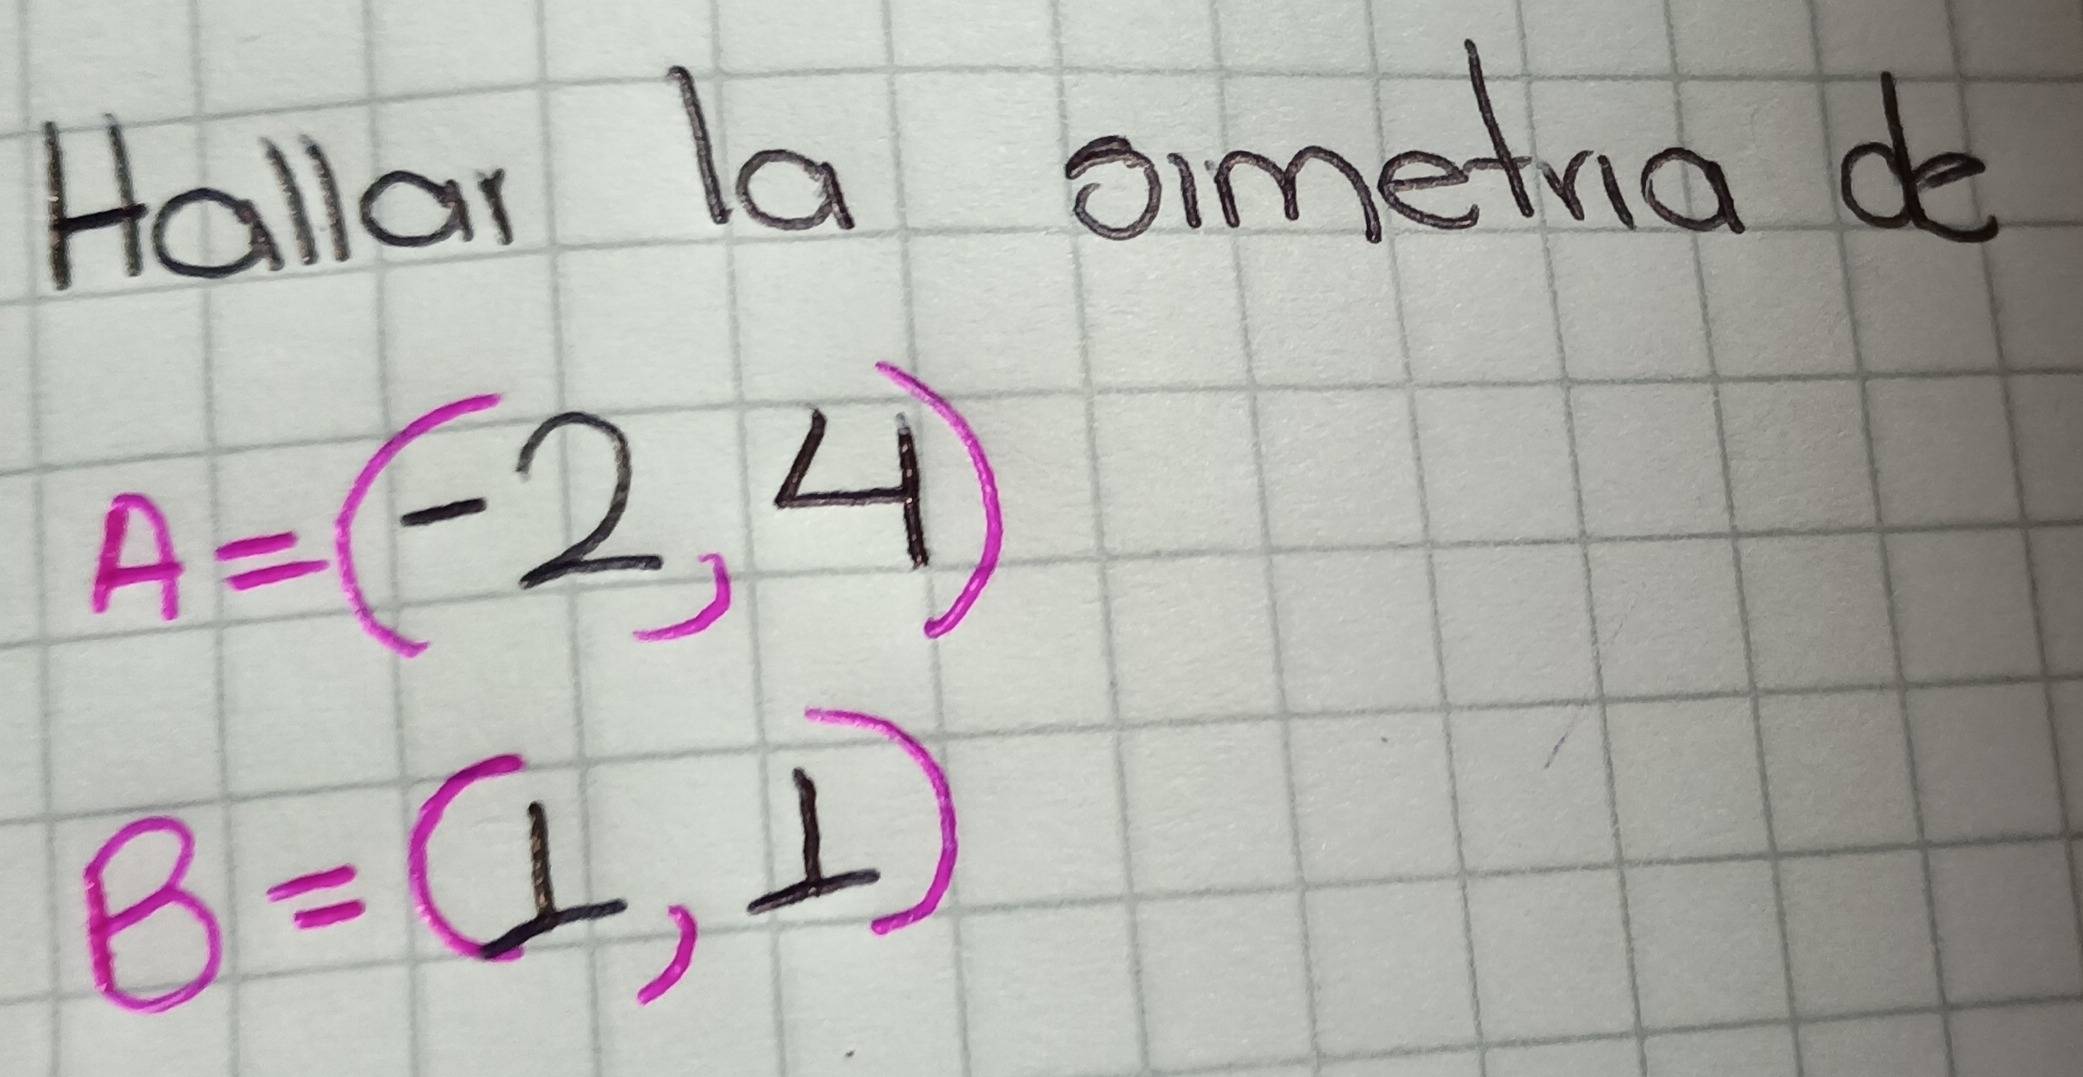 Hallar la simetria de
A=(-2,4)
B=(1,1)